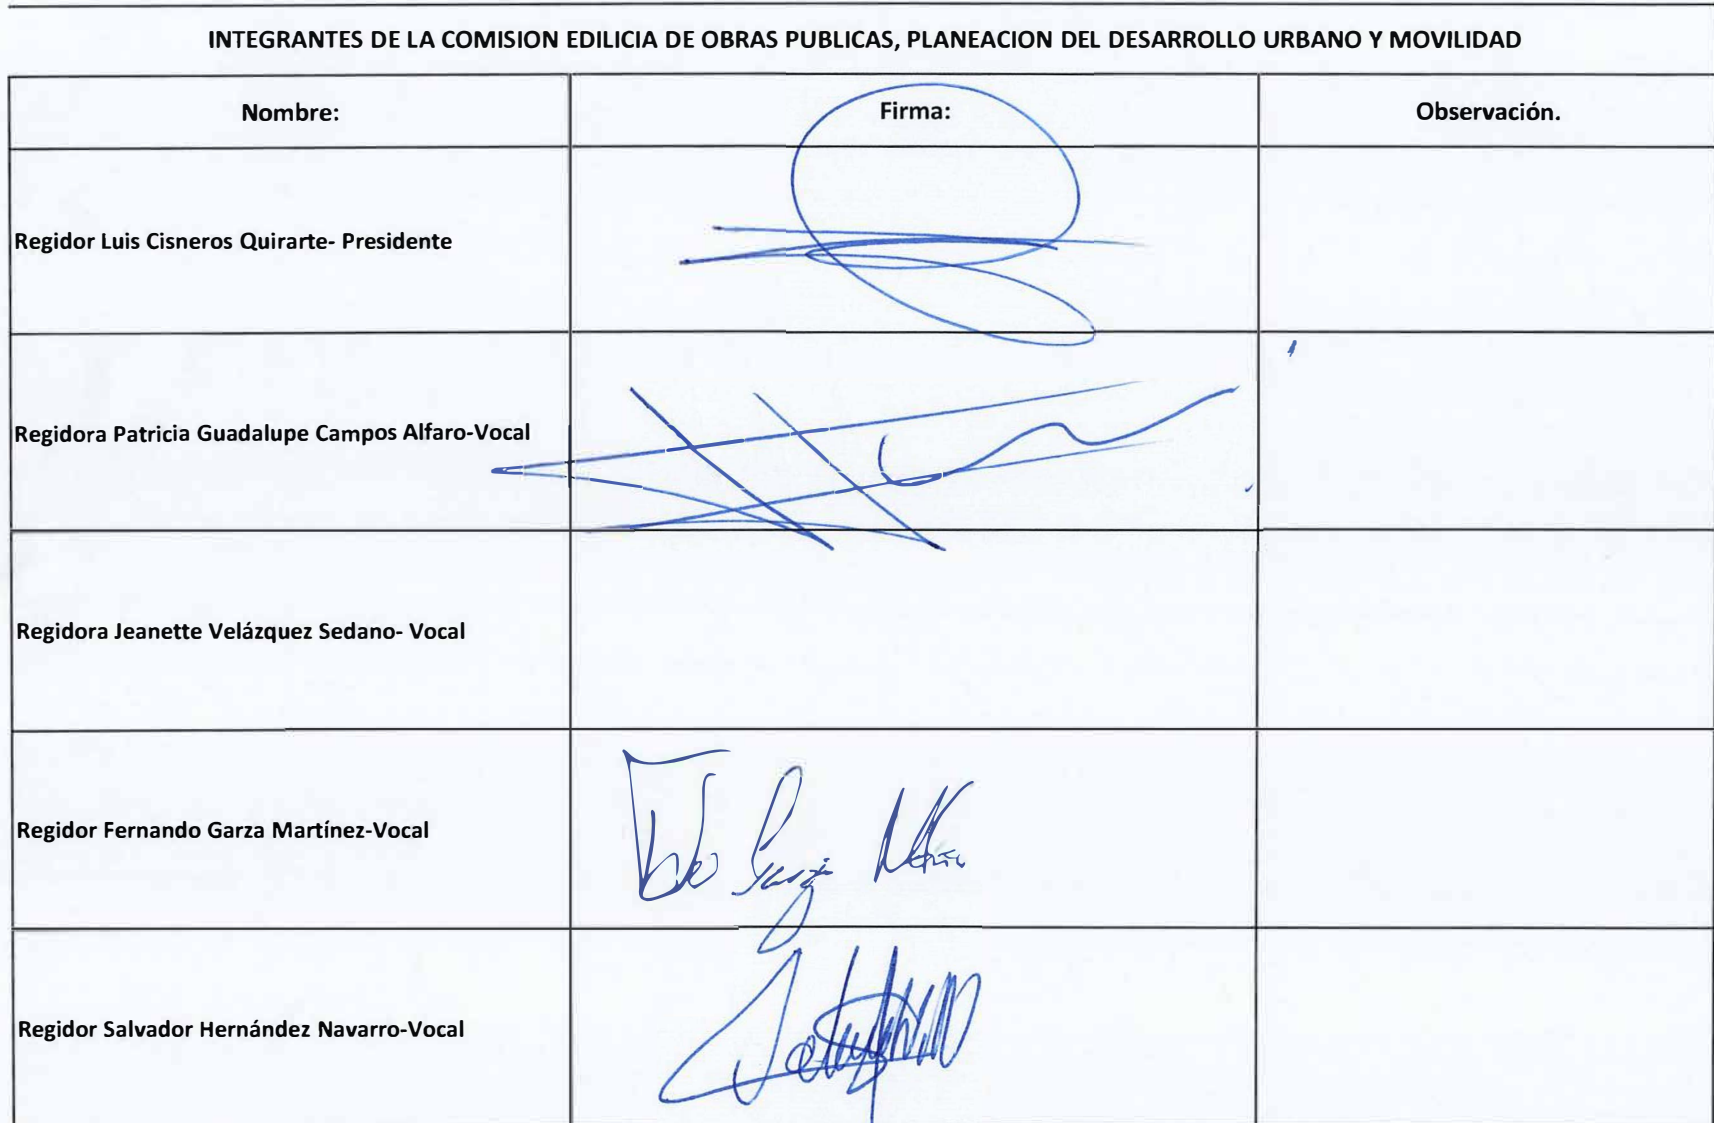 INTEGRANTES DE LA COMISION EDILICIA DE OBRAS PUBLICAS, PLANEACION DEL DESARROLLO URBANO Y MOVILIDAD
Nombre: Firma: Observación.
Regidor Luis Cisneros Quirarte- Presidente
Regidora Patricia Guadalupe Campos Alfaro-Vocal
Regidora Jeanette Velázquez Sedano- Vocal
Regidor Fernando Garza Martínez-Vocal
Regidor Salvador Hernández Navarro-Vocal